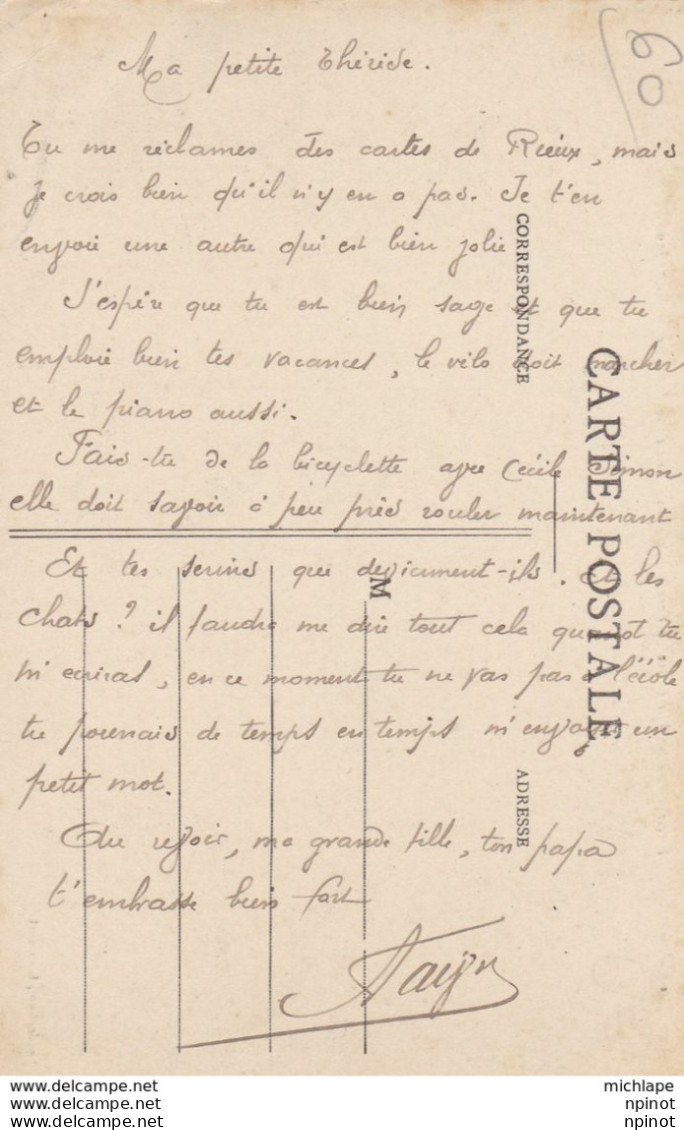 60
Ma petite Thérèse.
Tu me réclames des cartes de Rieux, mais
je crois bien qu'il n'y en a pas. Je t'en
envoie une autre qui est bien jolie
J'espère que tu est bien sage et que tu
emploie bien tes vacances, le vélo doit marcher
et le piano aussi.
Fais-tu de la bicyclette avec Cécile Simon
elle doit savoir à peu près rouler maintenant
Et tes serins que deviennent-ils. Et les
chats? il faudra me dire tout cela quand tu
m'ecriras, en ce moment tu ne vas pas à l'école
tu pourrais de temps en temps m'envoyer un
petit mot.
Au revoir, ma grande fille, ton papa
t'embrasse bien fort
CORRESPONDANCE
CARTE POSTALE
M
ADRESSE
www.delcampe.net
www.delcampe.net
www.delcampe.net
michlape
npinot
npinot